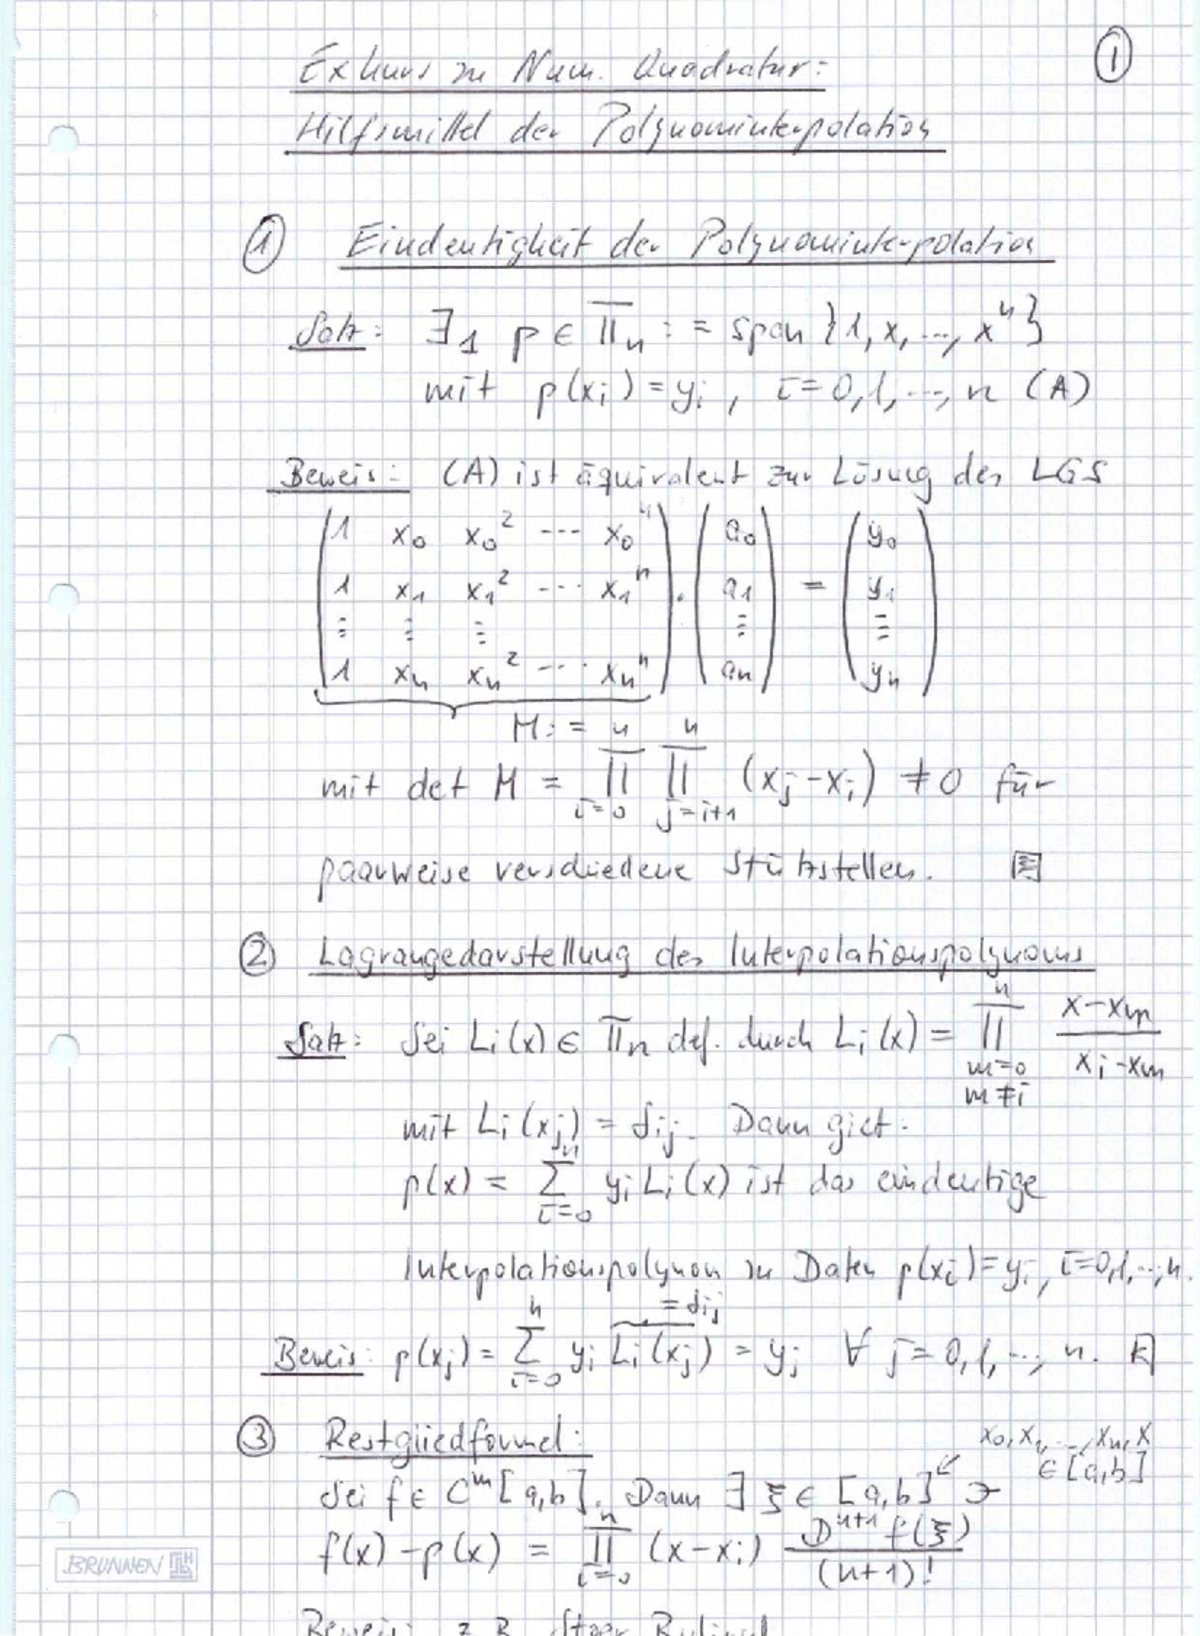 ①
Exkurs zu Num. Quadratur:
Hilfsmittel der Polynominterpolation
① Eindeutigkeit der Polynominterpolation
Satz: ∃₁ p ∈ Π_n := span {1, x, ..., xⁿ}
mit p(x_i) = y_i, i = 0, 1, ..., n (A)
Beweis: (A) ist äquivalent zur Lösung des LGS
1 x_0 x_0² ... x_0ⁿ a_0 y_0
1 x_1 x_1² ... x_1ⁿ · a_1 = y_1
⋮ ⋮ ⋮ ⋮ ⋮
1 x_n x_n² ... x_nⁿ a_n y_n
M :=
mit det M = ∏_{i=0}^{n} ∏_{j=i+1}^{n} (x_j - x_i) ≠ 0 für
paarweise verschiedene Stützstellen.
② Lagrangedarstellung des Interpolationspolynoms
Satz: Sei L_i(x) ∈ Π_n def. durch L_i(x) = ∏_{m=0, m≠i}^{n} (x - x_m)/(x_i - x_m)
mit L_i(x_j) = δ_ij. Dann gilt:
p(x) = ∑_{i=0}^{n} y_i L_i(x) ist das eindeutige
Interpolationspolynom zu Daten p(x_i) = y_i, i = 0, 1, ..., n.
= δ_ij
Beweis: p(x_j) = ∑_{i=0}^{n} y_i L_i(x_j) = y_j ∀ j = 0, 1, ..., n.
③ Restgliedformel:
x_0, x_1, ..., x_n, x
∈ [a,b]
Sei f ∈ C^m [a,b]. Dann ∃ ξ ∈ [a,b] ∋
f(x) - p(x) = ∏_{i=0}^{n} (x - x_i) D^{n+1} f(ξ)/(n+1)!
BRUNNEN
Beweis: z.B. Stoer Bulirsch